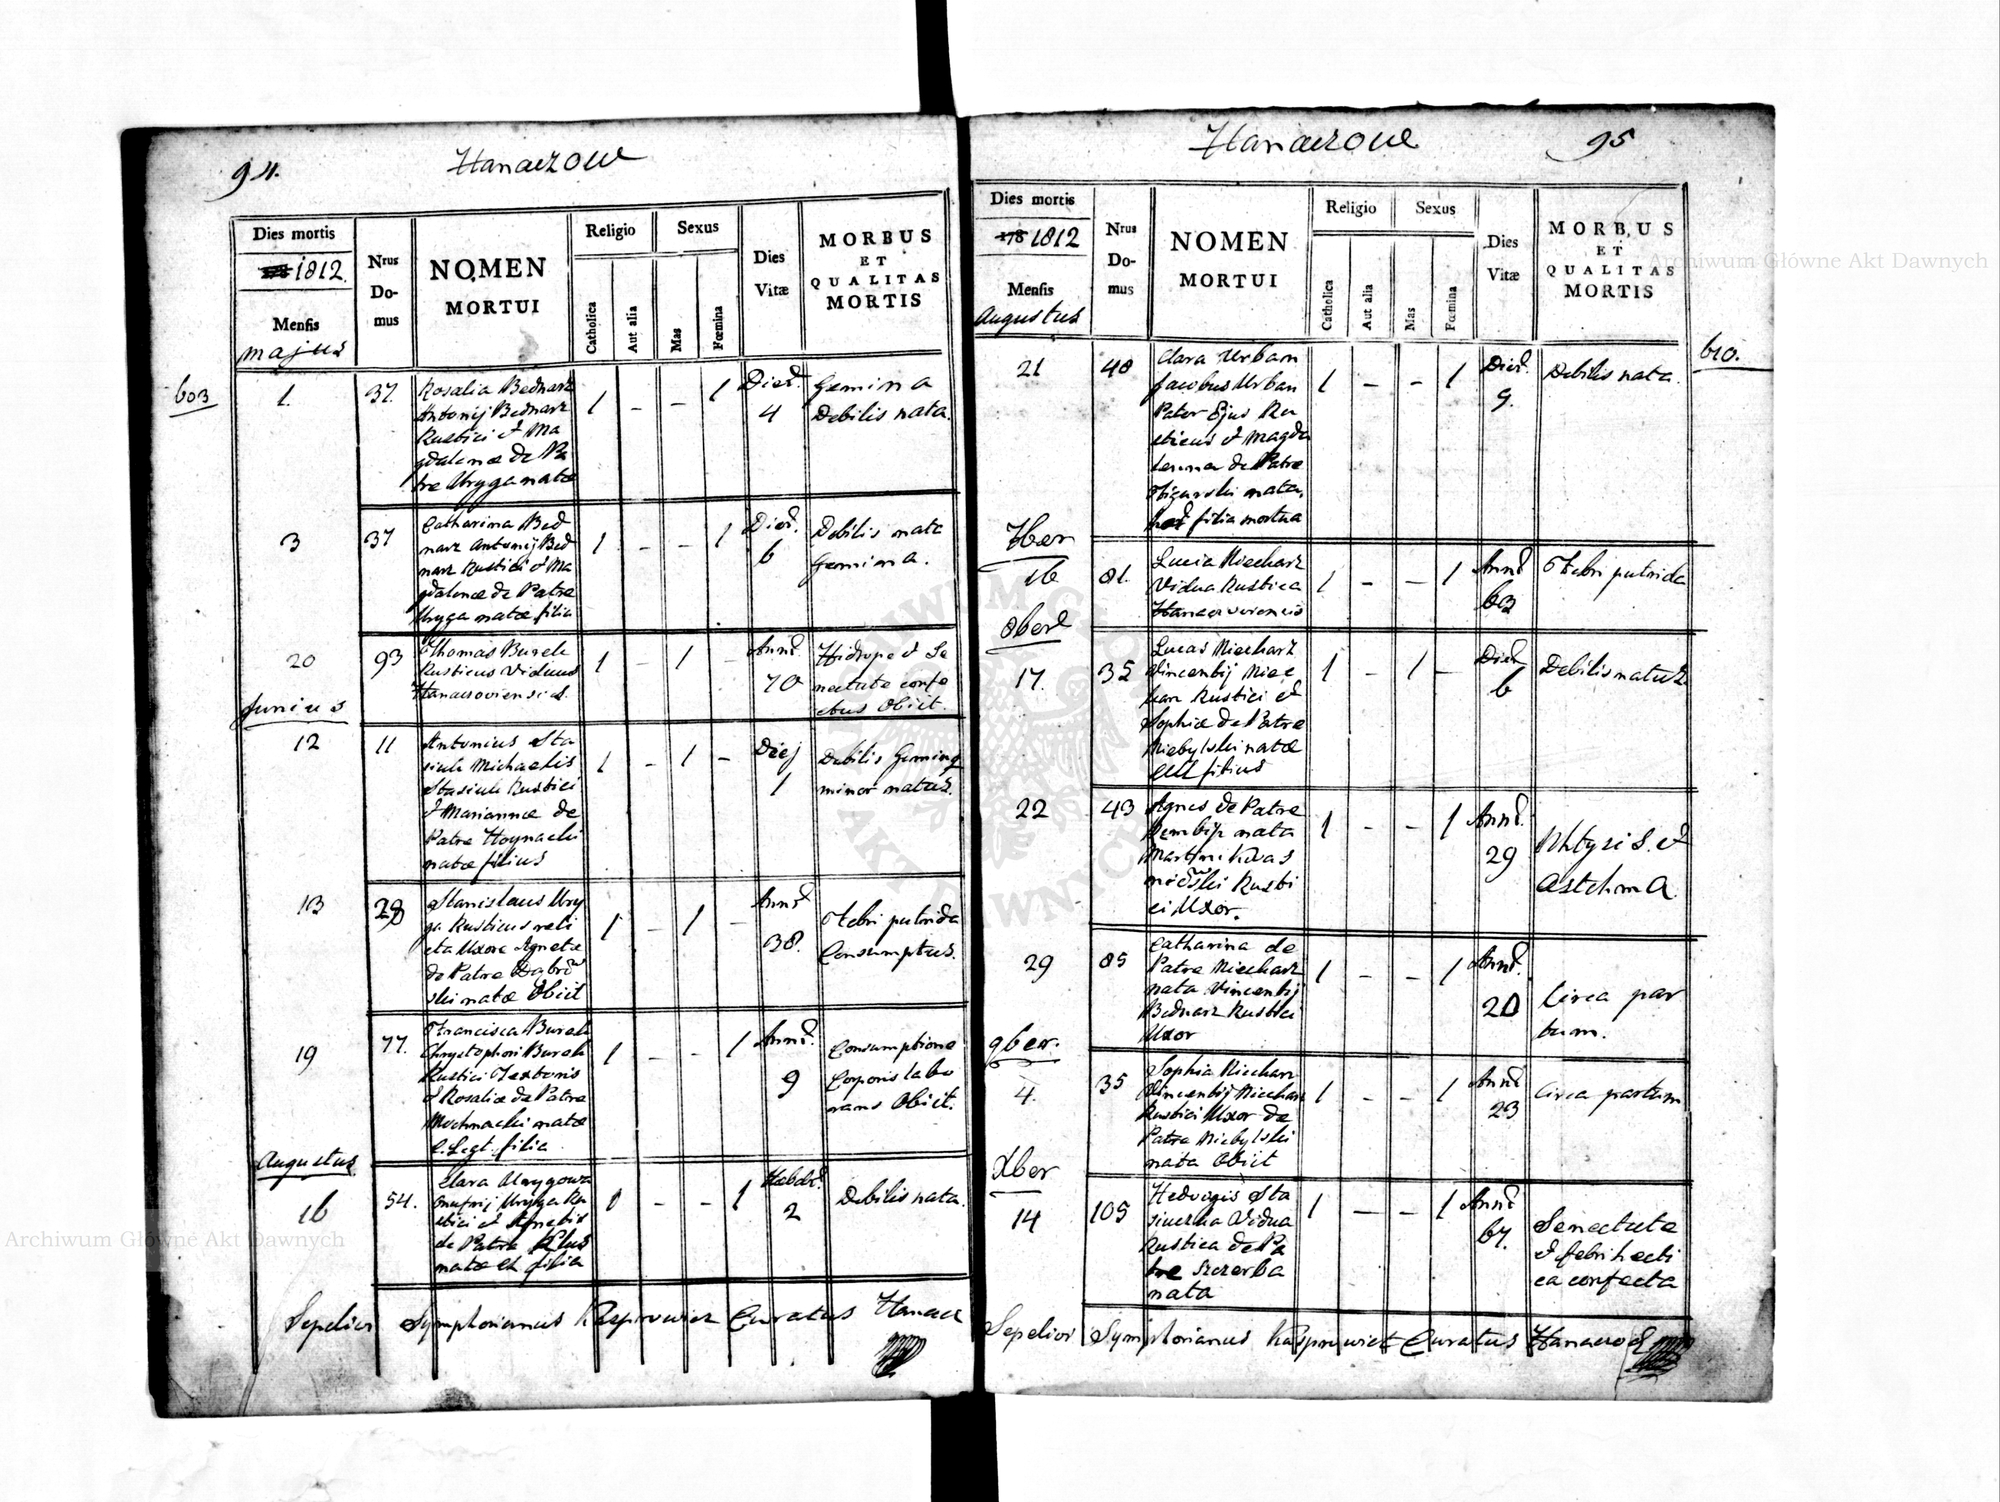 94.
Hanaczow
Dies mortis
1812
Mensis
majus
Nrus
Do-
mus
NOMEN
MORTUI
Religio
Catholica
Aut alia
Sexus
Mas
Fœmina
Dies
Vitæ
MORBUS
ET
QUALITAS
MORTIS
603
1.
37.
Rosalia Bednarz
Antonij Bednarz
Rustici et Ma
gdalenæ de Pa
tre Uryga natæ
1 - - 1
Dier.
4
Gemina
Debilis nata.
3
37
Catharina Bed
narz Antonij Bed
narz Rustici et Ma
gdalenæ de Patre
Uryga natæ filia
1 - - 1
Dier.
6
Debilis nata
Gemina.
20
93
Thomas Burek
Rusticus Viduus
Hanacoviensis
1 - 1 -
Annor.
70
Hidrope et Se
nectute confe
ctus Obiit.
Junius
12
11
Antonius Sta
siuk Michaelis
Stasiuk Rustici
et Mariannæ de
Patre Hoynacki
natæ filius
1 - 1 -
Diej
1
Debilis Geminq
minor natus.
13
28
Stanislaus Ury
ga Rusticus reli
cta Uxore Agnete
de Patre
ski natæ Obiit
1 - 1 -
Annor.
38.
Febri putrida
Consumptus.
19
77.
Francisca Burek
Chrystophori Burek
Rustici Textoris
et Rosaliæ de Patre
Mochnacki natæ
C. Legt. filia
1 - - 1
Annor.
9
Consumptione
Corporis labo
rans Obiit.
Augustus
16
54.
Clara Urygowa
Onufrij Uryga Ru
stici et Agnetis
de Patre Klus
natæ filia
1 - - 1
Hebdo.
2
Debilis nata.
Sepelivi Symphorianus Kasprowicz Curatus Hanacz
Hanaczow
95
Dies mortis
178 1812
Mensis
Augustus
Nrus
Do-
mus
NOMEN
MORTUI
Religio
Catholica
Aut alia
Sexus
Mas
Fœmina
Dies
Vitæ
MORBUS
ET
QUALITAS
MORTIS
610.
21
48
Clara Urban
Jacobus Urban
Pater Ejus Ru
sticus et Magda
lenna de Patre
nata,
filia mortua
1 - - 1
Dier.
9.
Debilis nata.
7ber
16
81.
Lucia Niecharz
Vidua Rustica
Hanacoviensis
1 - - 1
Annor
63
Febri putrida
8bere
17.
35
Lucas Niecharz
Vincentij Niec
harz Rustici et
Sophiæ de Patre
Niebylski natæ
filius
1 - 1 -
Dier
6
Debilis natus
22
43
Agnes de Patre
nata
Martini Kwas
niewski Rusti
ci Uxor.
1 - - 1
Annor.
29
Phtysis et
Astchma.
29
85
Catharina de
Patre Niecharz
nata Vincentij
Bednarz Rustici
Uxor
1 - - 1
Annor.
20
Circa par
tum.
9ber.
4.
35
Sophia Niecharz
Vincentij Niecharz
Rustici Uxor de
Patre Niebylski
nata Obiit
1 - - 1
Annor
23
Circa partum
Xber
14
105
Hedvigis Sta
siuczka Vidua
Rustica de Pa
tre Szczerba
nata
1 - - 1
Annor
67.
Senectute
et febri hecti
ca confecta
Sepelivi Symphorianus Kasprowicz Curatus Hanaczo
Archiwum Główne Akt Dawnych
Archiwum Główne Akt Dawnych
ARCHIWUM GŁÓWNE
AKT DAWNYCH